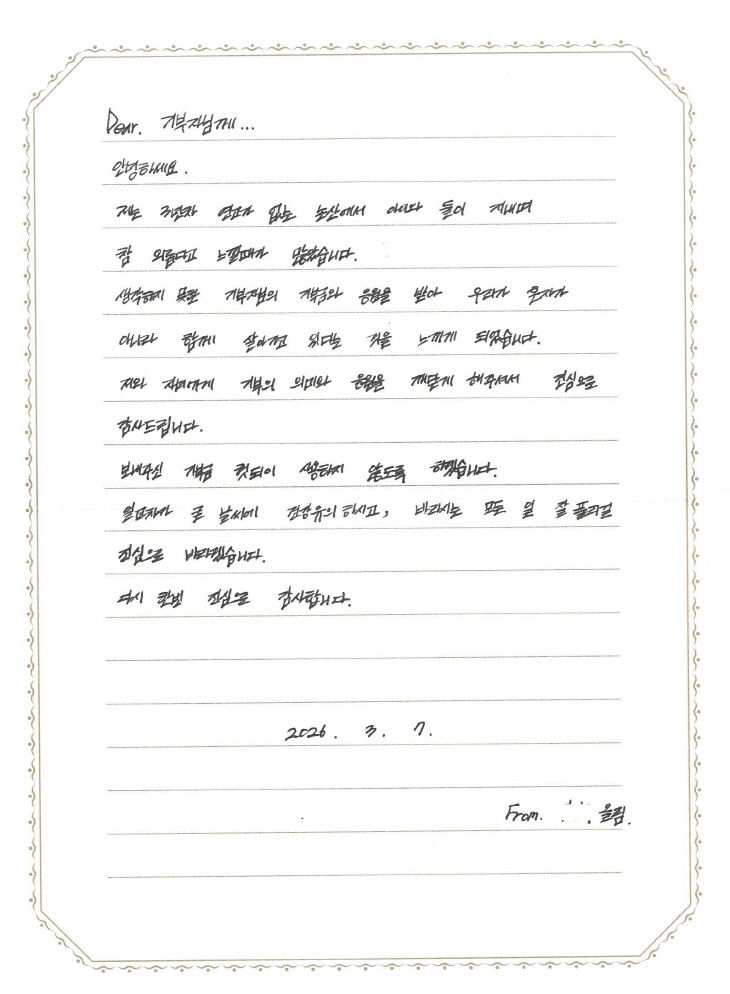 Dear. 기부자님께...
안녕하세요.
저는 3년차 연고가 없는 논산에서 아이와 둘이 지내며
참 외롭다고 느낄때가 많았습니다.
생각하지 못한 기부자님의 기부금과 응원을 받아 우리가 혼자가
아니라 함께 살아가고 있다는 것을 느끼게 되었습니다.
저와 자녀에게 기부의 의미와 응원을 깨닫게 해주셔서 진심으로
감사드립니다.
보내주신 기부금 헛되이 사용하지 않도록 하겠습니다.
일교차가 큰 날씨에 건강유의 하시고, 바라시는 모든 일 잘 풀리길
진심으로 바라겠습니다.
다시 한번 진심으로 감사합니다.
2026. 3. 7.
From. 올림.